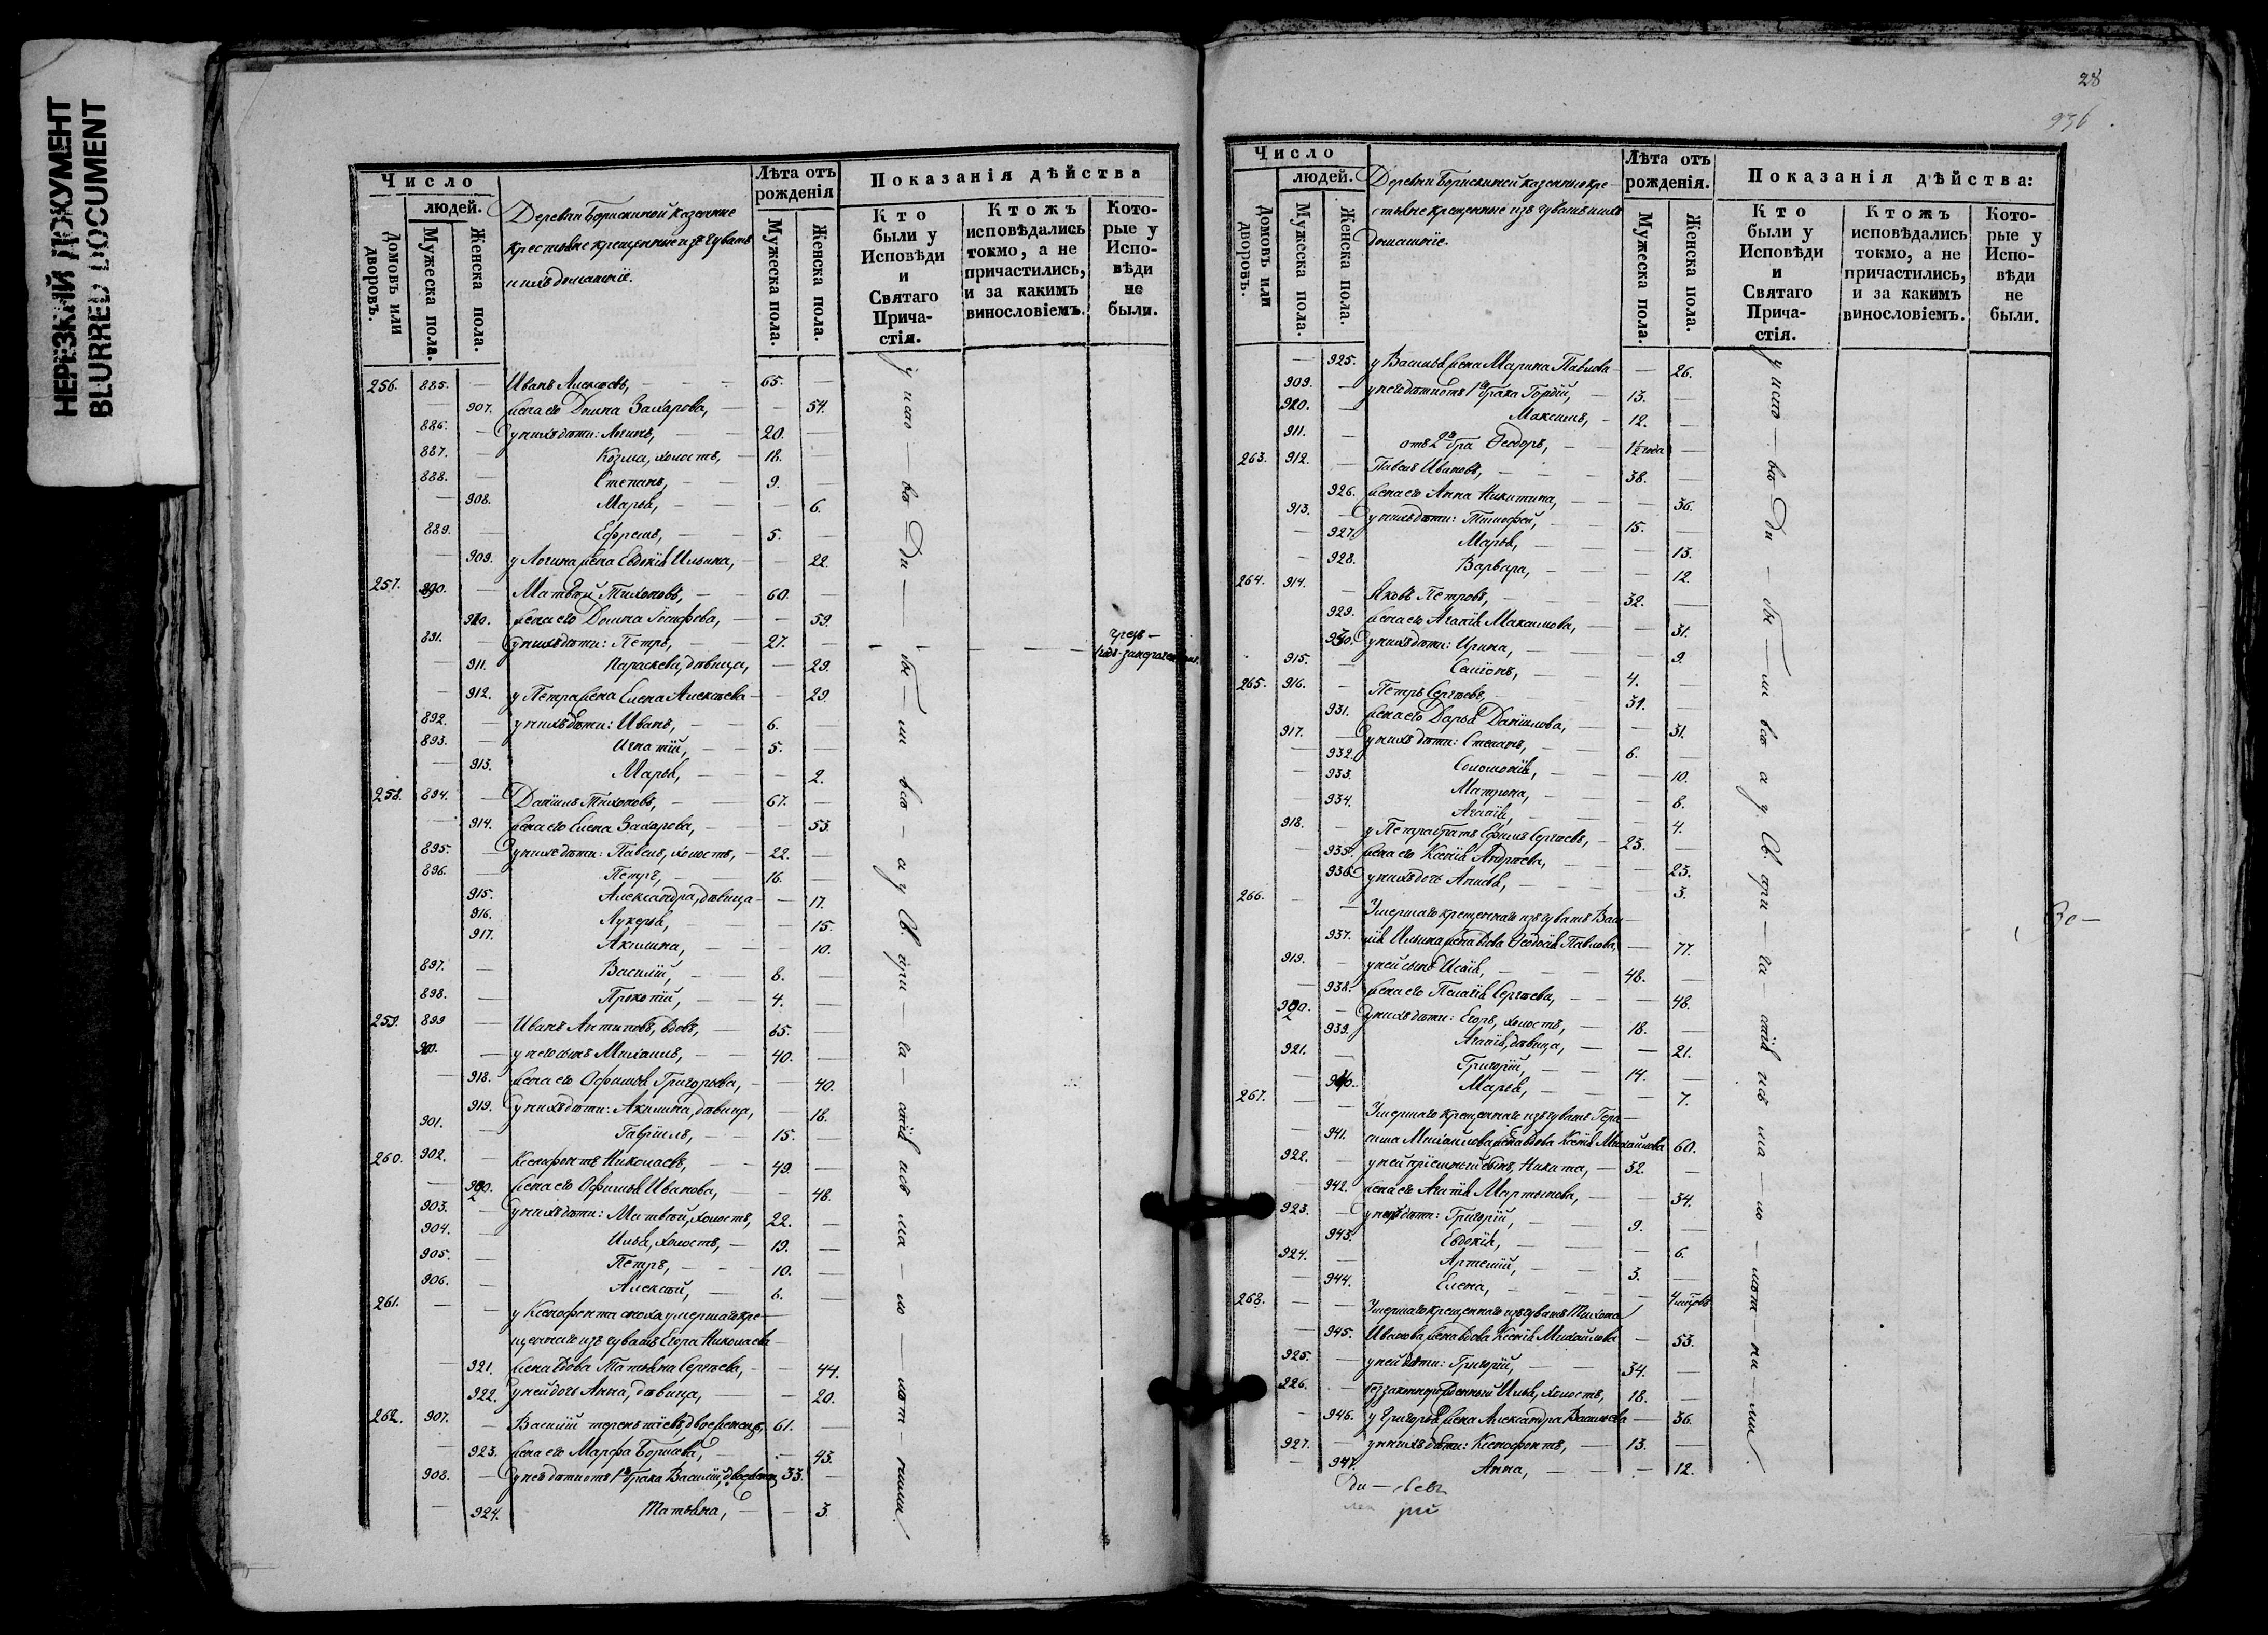 НЕРЕЗКИЙ ДОКУМЕНТ
BLURRED DOCUMENT
Число
людей.
Домовъ или дворовъ.
Мужеска пола.
Женска пола.
Деревни Борискиной казенные
крестьяне крещенные изъ чувашъ
и ихъ домашніе.
Лѣта отъ рожденія
Мужеска пола.
Женска пола.
Показанія дѣйства
Кто были у Исповѣди и Святаго Причастія.
Ктожъ исповѣдались токмо, а не причастились, и за какимъ винословіемъ.
Которые у Исповѣди не были.
256. 885. — Иванъ Алексѣевъ, — 65. —
— 907. жена его Домна Захарова, — — 54.
886. — у нихъ дѣти: Логинъ, — 20. —
887. — Козма, холостъ, — 18. —
888. — Степанъ, — 9. —
— 908. Марья, — — 6.
889. — Ефремъ, — 5. —
— 909. у Логина жена Евдокія Ильина, — — 22.
257. 890. — Матвѣй Тихоновъ, — 60. —
910. жена его Домна Іосифова, — — 59.
891. — у нихъ дѣти: Петръ, — 27. —
911. Параскева, дѣвица, — 29.
— 912. у Петра жена Елена Алексѣева — — 29
892. — у нихъ дѣти: Иванъ, — 6.
893. — Игнатій, — 5.
— 913. Марья, — — 2.
258. 894. — Даніилъ Тихоновъ, — 67. —
— 914. жена его Елена Захарова, — — 53.
895. — у нихъ дѣти: Павелъ, холостъ, — 22. —
896. — Петръ, — 16. —
915. Александра, дѣвица — — 17.
916. Лукерья, — — 15.
917. Акилина, — — 10.
897. — Василій, — 8. —
898. — Прокопій, — 4. —
259. 899 — Иванъ Антиповъ, вдовъ, — 65. —
900. — у него сынъ Михаилъ, — 40. —
— 918. жена его Офимья Григорьева, — — 40.
919. у нихъ дѣти: Акилина, дѣвица, — 18.
901. — Гавріилъ, — 15. —
260. 902. — Ксенофонтъ Николаевъ, — 49. —
— 920. жена его Офимья Иванова, — — 48.
903. — у нихъ дѣти: Матвѣй, холостъ, 22. —
904. — Илья, холостъ, — 19. —
905. — Петръ, — 10. —
906. — Алексѣй, — 6. —
261. — — у Ксенофонта сноха умершаго кре-
щеннаго изъ чувашъ Егора Николаева
— 921. жена вдова Татьяна Сергѣева, — — 44.
922. у ней дочь Анна, дѣвица, — — 20.
262. 907. — Василій Терентіевъ, двоеженецъ, 61. —
— 923. жена его Марфа Борисова, — 43.
908. — у нея дѣти отъ 1го брака Василій, 33. —
— 924. Татьяна, — — 3.
28
936
Число
людей.
Домовъ или дворовъ.
Мужеска пола.
Женска пола.
Деревни Борискиной казенные кре-
стьяне крещенные изъ чувашъ и ихъ
домашніе.
Лѣта отъ рожденія.
Мужеска пола.
Женска пола.
Показанія дѣйства:
Кто были у Исповѣди и Святаго Причастія.
Ктожъ исповѣдались токмо, а не причастились, и за какимъ винословіемъ.
Которые у Исповѣди не были.
— 925. у Василья жена Марина Павлова — — 26.
909. — у него дѣти отъ 1го брака Гордій, — 13. —
910. — Максимъ, — 12. —
911. — отъ 2го бра Ѳеодоръ, — 1½ года —
263. 912. — Павелъ Ивановъ, — 38. —
926. жена его Анна Никитина, — — 36.
913. — у нихъ дѣти: Тимофей, — 15. —
— 927. Марья, — — 13.
— 928. Варвара, — — 12.
264. 914. — Яковъ Петровъ, — 32. —
929. жена его Агафія Максимова, — — 31.
930. у нихъ дѣти: Ирина, — — 9.
915. — Семіонъ, — 4. —
265. 916. — Петръ Сергѣевъ, — 31. —
931. жена его Дарья Даніилова, — — 31.
917. — у нихъ дѣти: Степанъ, — 6. —
— 932. Соломонія, — — 10.
— 933. Матрона, — — 8.
— 934. Агафія, — — 4.
918. — у Петра братъ Ефимъ Сергѣевъ, — 25. —
— 935. жена его Ксенія Андреева, — — 23.
936. у нихъ дочь Анисья, — — 3.
266. — — Умершаго крещеннаго изъ чувашъ Васи-
937. лія Ильина жена вдова Ѳеодосія Павлова, — 77.
919. — у ней сынъ Исаія, — 48. —
— 938. жена его Пелагія Сергѣева, — — 48.
920. — у нихъ дѣти: Егоръ, холостъ, — 18. —
939. Агафія, дѣвица, — — 21.
921. — Григорій, — 14. —
— 940. Марья, — — 7.
267. — — Умершаго крещеннаго изъ чувашъ Гера-
— 941. сима Михаилова жена вдова Ксенія Михайлова 60.
922. — у ней пріемный сынъ, Никита, — 32. —
— 942. жена его Агафія Мартынова, — — 34.
923. — у нихъ дѣти: Григорій, — 9. —
943. Евдокія, — — 6.
924. — Артемій, — 3. —
— 944. Елена, — — 4 мѣсяцовъ
268. — — Умершаго крещеннаго изъ чувашъ Тихона
— 945. Иванова жена вдова Ксенія Михайлова — 53.
925. — у ней дѣти: Григорій, — 34. —
926. — беззаконнорожденный Илья, холостъ, 18. —
— 946. у Григорья жена Александра Васильева — 36.
927. — у нихъ дѣти: Ксенофонтъ, — 13. —
— 947. Анна, — — 12.